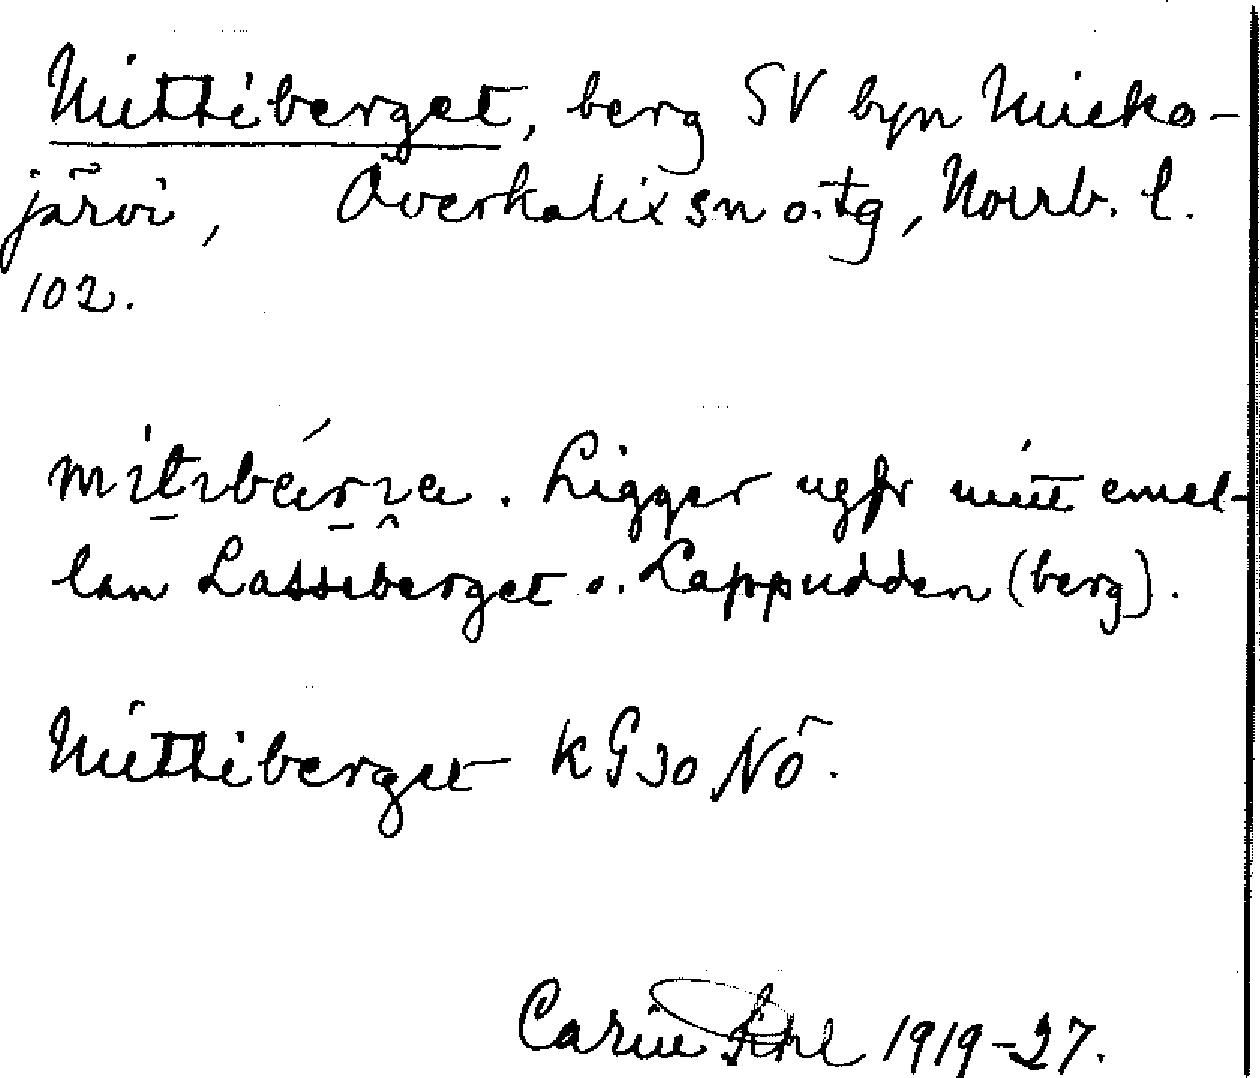 Mittiberget, berg SV byn Miekojärvi, Överkalix sn o. tg, Norrb. l.
102.
Ligger ugfr mitt emellan Lassiberget o. Lappudden (berg).
Mittiberget KG 30 NÖ.
Carin 1919-27.